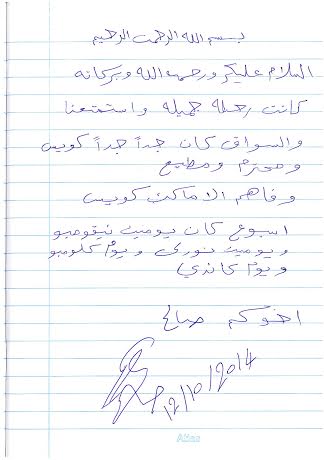 بسم الله الرحمن الرحيم
السلام عليكم ورحمة الله وبركاته
كانت رحلة جميله واستمتعنا
والسواق كان جداً جداً كويس
ومحترم ومطيع
وفاهم الاماكن كويس
اسبوع كان يومين نيقومبو
ويومين نوري ويوم كلومبو
ويوم كاندي
اخوكم صالح
12/10/2014
Atlas